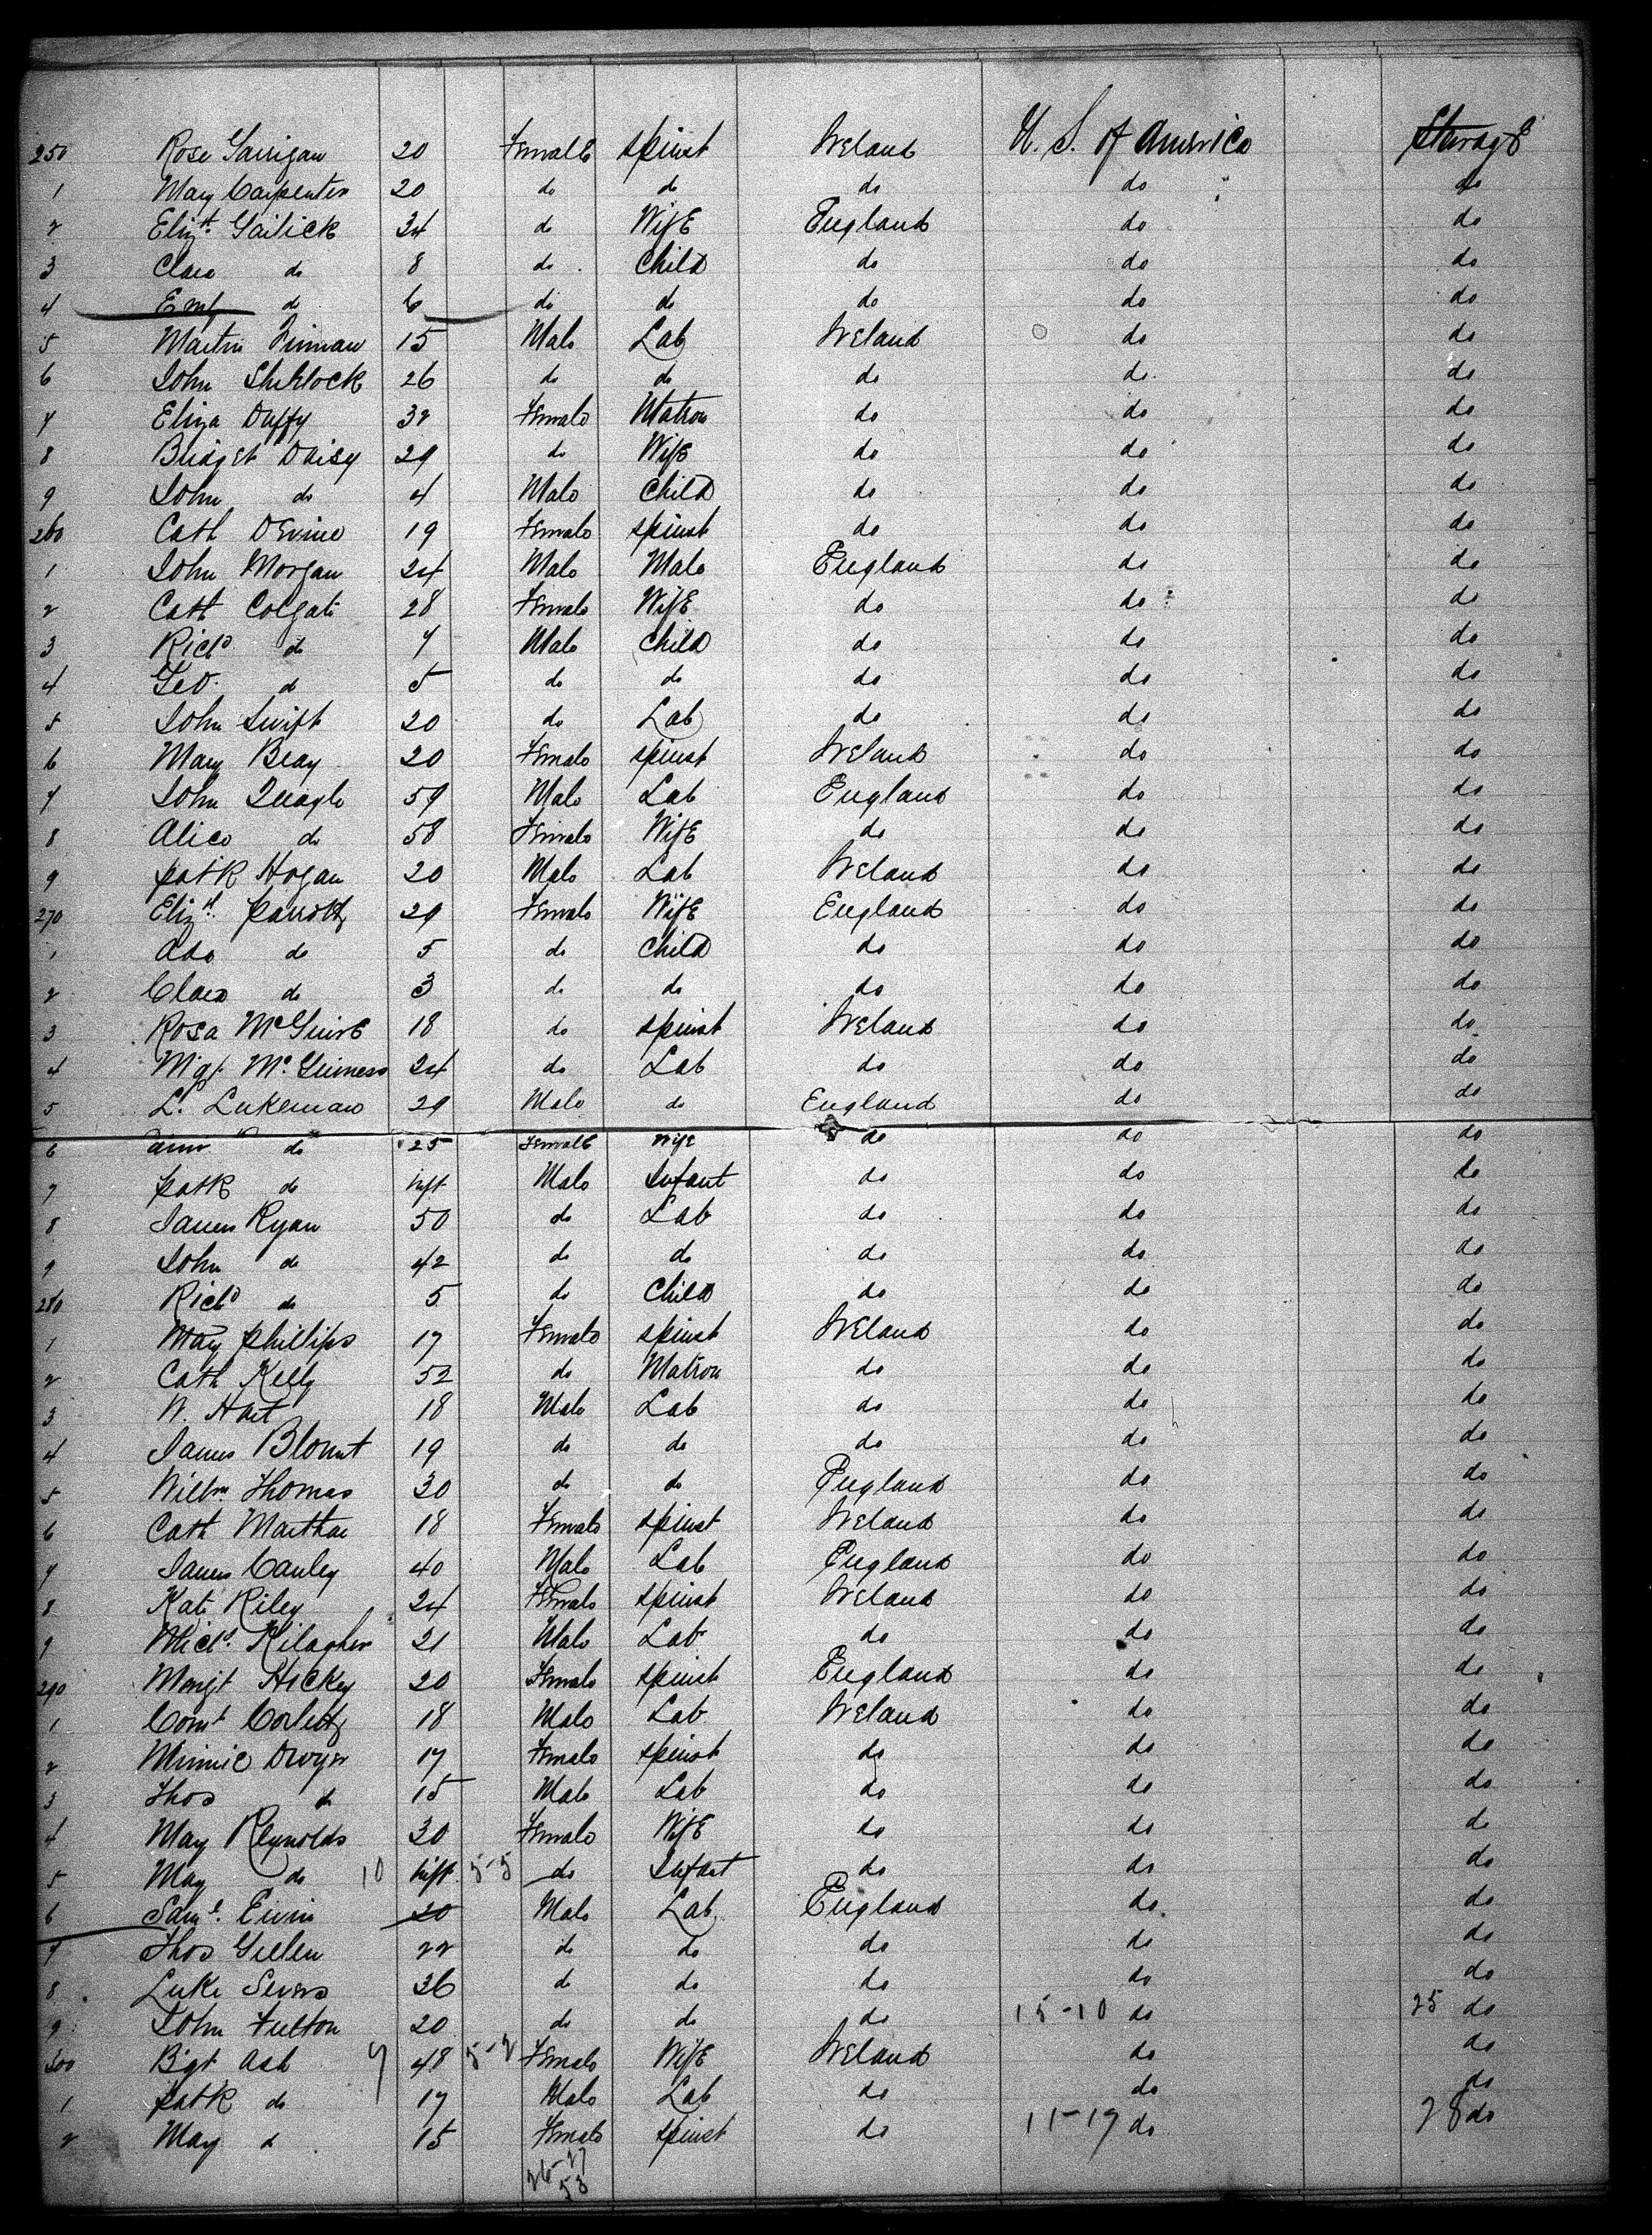 250 Rose Garrigan 20 Female Spinst Ireland U. S. of America Steerage
1 Mary Carpenter 20 do do do do do
2 Elizth Garlick 34 do Wife England do do
3 Clara do 8 do Child do do do
4 Emy do 6 do do do do do
5 Martin Finnan 15 Male Lab Ireland do do
6 John Sherlock 26 do do do do do
7 Eliza Duffy 32 Female Matron do do do
8 Bridget Daisy 29 do Wife do do do
9 John do 4 Male Child do do do
260 Cath Devine 19 Female Spinst do do do
1 John Morgan 24 Male Male England do do
2 Cath Colgate 28 Female Wife do do do
3 Richd do 7 Male Child do do do
4 Geo. do 5 do do do do do
5 John Swift 20 do Lab do do do
6 Mary Beay 20 Female Spinst Ireland do do
7 John Queagle 59 Male Lab England do do
8 Alice do 58 Female Wife do do do
9 Patk Hogan 20 Male Lab Ireland do do
270 Elizth Parrott 29 Female Wife England do do
1 Ada do 5 do Child do do do
2 Clara do 3 do do do do do
3 Rosa McGuire 18 do Spinst Ireland do do
4 Mgt McGuiness 24 do Lab do do do
5 L. Lukeman 29 Male do England do do
6 Ann do 25 Female Wife do do do
7 Patk do Inft Male Infant do do do
8 James Ryan 50 do Lab do do do
9 John do 42 do do do do do
280 Richd do 5 do Child do do do
1 May Phillips 17 Female Spinst Ireland do do
2 Cath Kelly 52 do Matron do do do
3 W. Hart 18 Male Lab do do do
4 James Blount 19 do do do do do
5 Willm Thomas 30 do do England do do
6 Cath Marthae 18 Female Spinst Ireland do do
7 James Cauley 40 Male Lab England do do
8 Kate Riley 24 Female Spinst Ireland do do
9 Michl Kilagher 21 Male Lab do do do
290 Margt Hickey 20 Female Spinst England do do
1 Cornt Corlett 18 Male Lab Ireland do do
2 Minnie Dwyer 17 Female Spinst do do do
3 Thos do 15 Male Lab do do do
4 May Reynolds 30 Female Wife do do do
5 May do 10 Inft 5-5 do Infant do do do
6 Saml. Eivin 20 Male Lab England do do
7 Thos Gillen 22 do do do do do
8 Luke Severs 36 do do do do do
9 John Fulton 20 do do do 15-10 do 25 do
300 Bgt Ash 7 48 5-2 Female Wife Ireland do do
1 Patk do 17 Male Lab do do do
2 May do 15 Female Spinst do 11-17 do 28 do
26-27
53